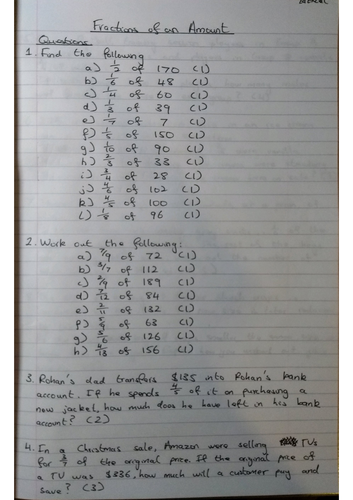 Fractions of an Amount
Questions
1. Find the following
a) 1/2 of 170 (1)
b) 1/6 of 48 (1)
c) 1/4 of 60 (1)
d) 1/3 of 39 (1)
e) 1/7 of 7 (1)
f) 1/5 of 150 (1)
g) 1/10 of 90 (1)
h) 2/3 of 33 (1)
i) 3/4 of 28 (1)
j) 4/6 of 102 (1)
k) 4/5 of 100 (1)
l) 1/8 of 96 (1)
2. Work out the following:
a) 7/9 of 72 (1)
b) 3/7 of 112 (1)
c) 2/9 of 189 (1)
d) 7/12 of 84 (1)
e) 2/11 of 132 (1)
f) 5/9 of 63 (1)
g) 5/6 of 126 (1)
h) 4/13 of 156 (1)
3. Rohan's dad transfers $135 into Rohan's bank
account. If he spends 4/5 of it on purchasing a
new jacket, how much does he have left in his bank
account? (2)
4. In a Christmas sale, Amazon were selling TVs
for 3/7 of the original price. If the original price of
a TV was $836, how much will a customer pay and
save? (3)